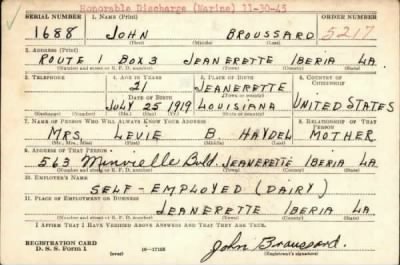 Honorable Discharge (Marine) 11-30-45
SERIAL NUMBER 1. NAME (Print) ORDER NUMBER
1688 JOHN BROUSSARD 5217
(First) (Middle) (Last)
2. ADDRESS (Print)
ROUTE 1 BOX 3 JEANERETTE IBERIA LA.
(Number and street or R. F. D. number) (Town) (County) (State)
3. TELEPHONE 4. AGE IN YEARS 5. PLACE OF BIRTH 6. COUNTRY OF CITIZENSHIP
21 JEANERETTE
DATE OF BIRTH (Town or county)
JULY 25 1919 LOUISIANA UNITED STATES
(Mo.) (Day) (Yr.) (State or country)
7. NAME OF PERSON WHO WILL ALWAYS KNOW YOUR ADDRESS 8. RELATIONSHIP OF THAT PERSON
MRS. LEVIE B HAYDEL MOTHER
(Mr., Mrs., Miss) (First) (Middle) (Last)
9. ADDRESS OF THAT PERSON
563 Minvielle Bvld. JEANERETTE IBERIA LA
(Number and street or R. F. D. number) (Town) (County) (State)
10. EMPLOYER'S NAME
SELF-EMPLOYED (DAIRY)
11. PLACE OF EMPLOYMENT OR BUSINESS
JEANERETTE IBERIA LA.
(Number and street or R. F. D. number) (Town) (County) (State)
I AFFIRM THAT I HAVE VERIFIED ABOVE ANSWERS AND THAT THEY ARE TRUE.
REGISTRATION CARD
D. S. S. Form 1 (over) John Broussard.
(Registrant's signature)